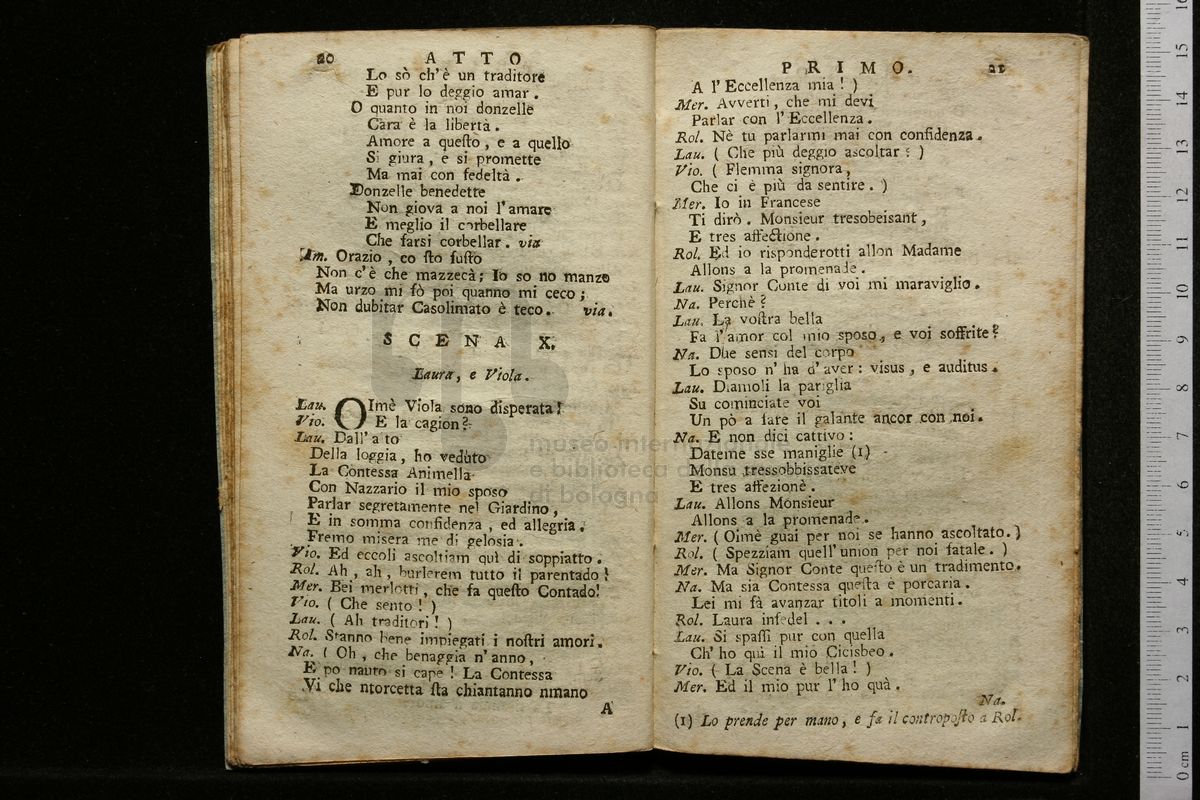 20 ATTO
Lo sò ch' è un traditore
E pur lo deggio amar.
O quanto in noi donzelle
Cara è la libertà.
Amore a queſto, e a quello
Si giura, e si promette
Ma mai con fedeltà.
Donzelle benedette
Non giova a noi l'amare
E meglio il corbellare
Che farsi corbellar. via
Am. Orazio, co ſto fuſto
Non c'è che mazzecà; Io so no manzo
Ma urzo mi fò poi quanno mi ceco;
Non dubitar Casolimato è teco. via.
SCENA X.
Laura, e Viola.
Lau. OImè Viola sono disperata!
Vio. E la cagion?
Lau. Dall' a to
Della loggia, ho veduto
La Contessa Animella
Con Nazzario il mio sposo
Parlar segretamente nel Giardino,
E in somma confidenza, ed allegria.
Fremo misera me di gelosia.
Vio. Ed eccoli ascoltiam quì di soppiatto.
Rol. Ah, ah, burlerem tutto il parentado!
Mer. Bei merlotti, che fa queſto Contado!
Vio. ( Che sento! )
Lau. ( Ah traditori! )
Rol. Stanno bene impiegati i noſtri amori.
Na. ( Oh, che benaggia n' anno,
E po nauto si cape! La Contessa
Vi che ntorcetta ſta chiantanno nmano
A
PRIMO. 21
A l' Eccellenza mia! )
Mer. Avverti, che mi devi
Parlar con l' Eccellenza.
Rol. Nè tu parlarmi mai con confidenza.
Lau. ( Che più deggio ascoltar? )
Vio. ( Flemma signora,
Che ci è più da sentire. )
Mer. Io in Francese
Ti dirò. Monsieur tresobeisant,
E tres affectione.
Rol. Ed io risponderotti allon Madame
Allons a la promenade.
Lau. Signor Conte di voi mi maraviglio.
Na. Perchè?
Lau. La voſtra bella
Fa l'amor col mio sposo, e voi soffrite?
Na. Due sensi del corpo
Lo sposo n' ha d' aver: visus, e auditus.
Lau. Diamoli la pariglia
Su cominciate voi
Un pò a fare il galante ancor con noi.
Na. E non dici cattivo:
Dateme sse maniglie (1)
Monsu tressobbissateve
E tres affezionè.
Lau. Allons Monsieur
Allons a la promenade.
Mer. ( Oimè guai per noi se hanno ascoltato. )
Rol. ( Spezziam quell' union per noi fatale. )
Mer. Ma Signor Conte queſto è un tradimento.
Na. Ma sia Contessa queſta è porcaria.
Lei mi fà avanzar titoli a momenti.
Rol. Laura infedel . . .
Lau. Si spaſſi pur con quella
Ch' ho quì il mio Cicisbeo.
Vio. ( La Scena è bella! )
Mer. Ed il mio pur l' ho quà.
Na.
(1) Lo prende per mano, e fa il contropoſto a Rol.
museo internazionale
e biblioteca d
di bologna
0 cm 1 2 3 4 5 6 7 8 9 10 11 12 13 14 15 16